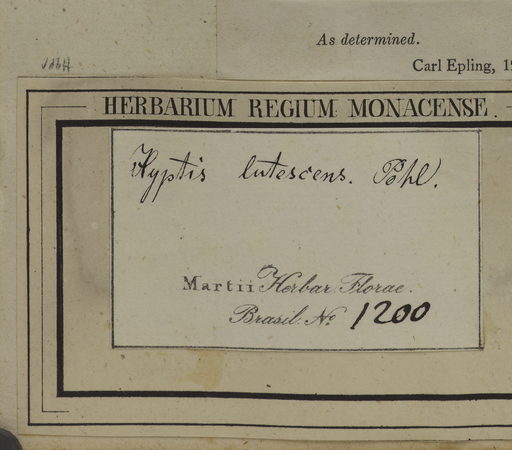 As determined.
Carl Epling, 19
HERBARIUM REGIUM MONACENSE.
Hyptis lutescens. Pohl.
Martii Herbar. Florae.
Brasil. No. 1200